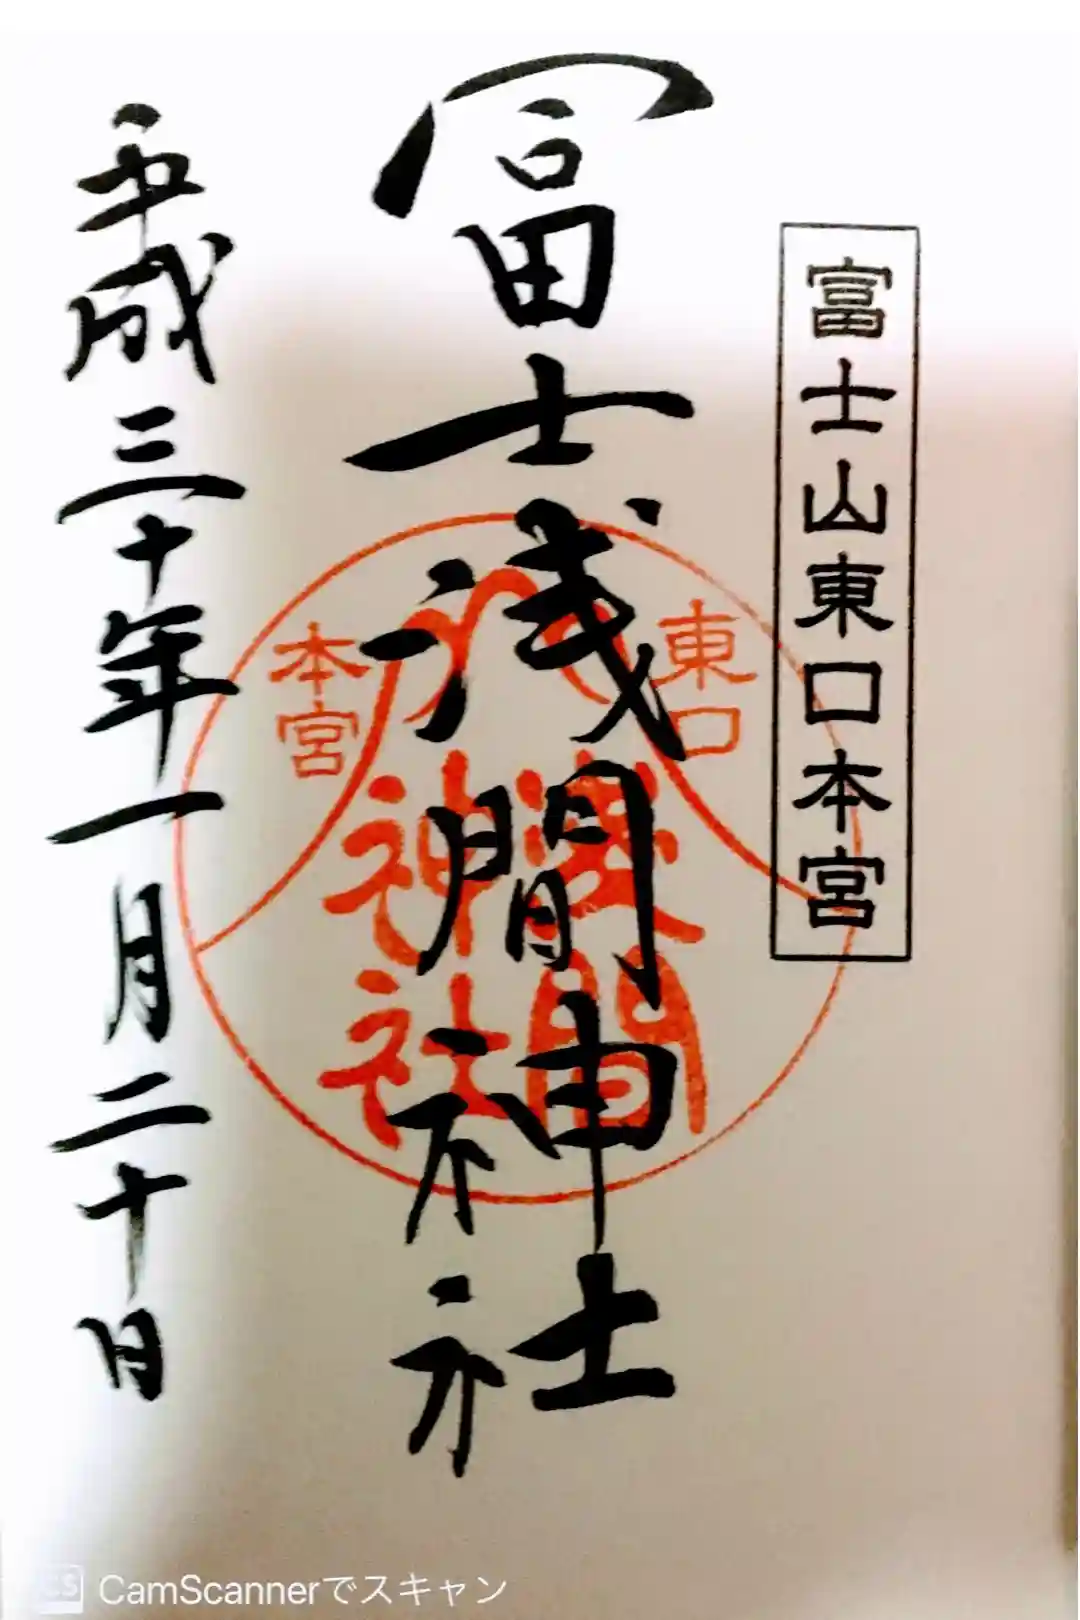 富士山東口本宮
冨士浅間神社
東口
本宮
浅間
神社
平成三十年一月二十日
CS CamScannerでスキャン